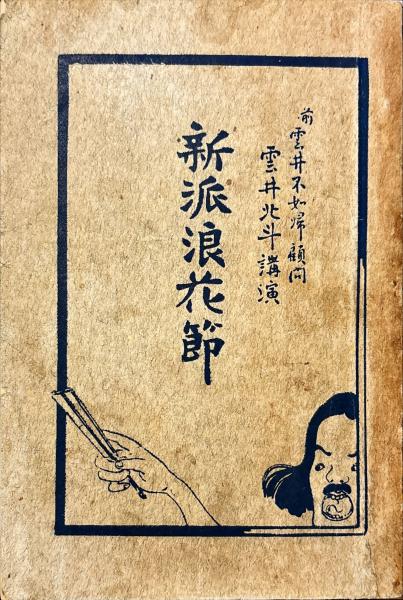 前雲井不如帰顧問
雲井北斗講演
新派浪花節